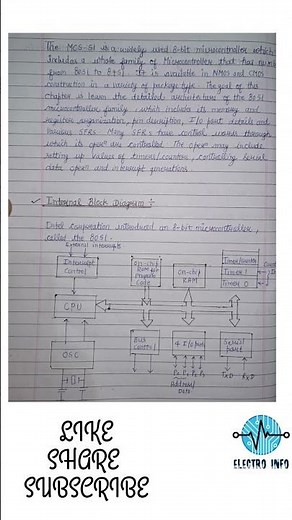 The MCS-51 is a widely used 8-bit microcontroller which
includes a whole family of Microcontrollers that has
from 8031 to 8751. It is available in NMOS and CMOS
construction in a variety of package type. The goal of this
chapter is learn the detailed architecture of the 8051
microcontroller family, which includes its memory and
register organization, pin description, I/O port details and
various SFRs. Many SFR's have control words through
which its are controlled. The may include
setting up value of timers/counters, controlling serial
data and interrupt generations
Internal Block Diagram :-
Intel corporation introduced an 8-bit microcontroller,
called the 8051.
External interrupts
Interrupt
Control
on-chip
ROM for
Program
Code
on-chip
RAM
Timer/Counter
Timer 1
Timer 0
CPU
OSC
Bus
Control
4 I/O ports
Serial
port
P0 P2 P1 P3
Address/
Data
TXD RXD
LIKE
SHARE
SUBSCRIBE
ELECTRO INFO